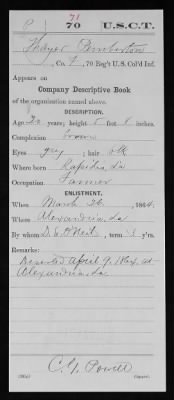 71
P 70 U.S.C.T.
Thayer Pemberton
, Co. F, 70 Reg't U.S. Col'd Inf.
Appears on
Company Descriptive Book
of the organization named above.
DESCRIPTION.
Age 20 years; height 5 feet 8 inches.
Complexion Brown
Eyes gray; hair blk
Where born Rapides, La
Occupation Farmer
ENLISTMENT.
When March 26, 1864.
Where Alexandria, La
By whom D. E. O'Neil; term 3 y'rs.
Remarks:
Deserted April 9, 1864 at
Alexandria, La
C. G. Powell
Copyist.